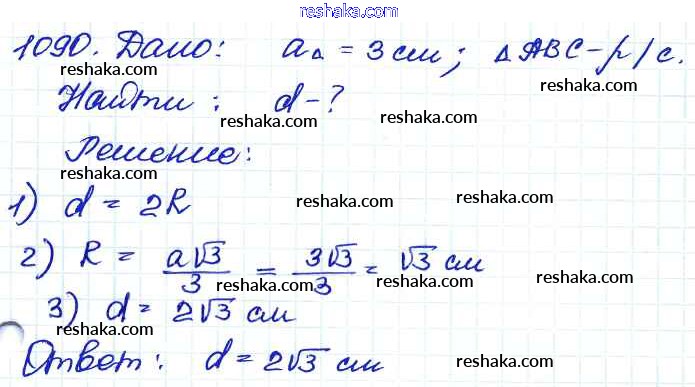 reshaka.com
1090. Дано: a△ = 3 см; △ABC – р/с.
reshaka.com reshaka.com
Найти: d - ?
reshaka.com reshaka.com
Решение:
reshaka.com
1) d = 2R
reshaka.com reshaka.com
2) R = a√3/3 = 3√3/3 = √3 см
reshaka.com reshaka.com
3) d = 2√3 см
reshaka.com reshaka.com
Ответ: d = 2√3 см
reshaka.com reshaka.com